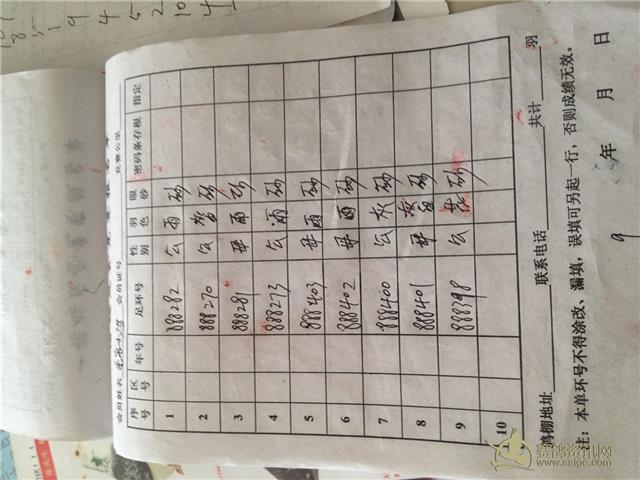 会员姓名 会员证号 竞赛公里
序号 区号 年号 足环号 性别 羽色 眼砂 密码条存根 指定
1 888282 公 雨 砂
2 888270 公 砂
3 888281 母 雨 砂
4 888273 公 雨 砂
5 888403 母 雨 砂
6 888402 母 雨 砂
7 888400 公 灰 砂
8 888401 母 砂
9 888398 公 灰 砂
10
鸽棚地址 联系电话 共计 羽
注：本单环号不得涂改、漏填，误填可另起一行，否则成绩无效。
年 月 日
9
赛鸽资讯网
www.saigc.com